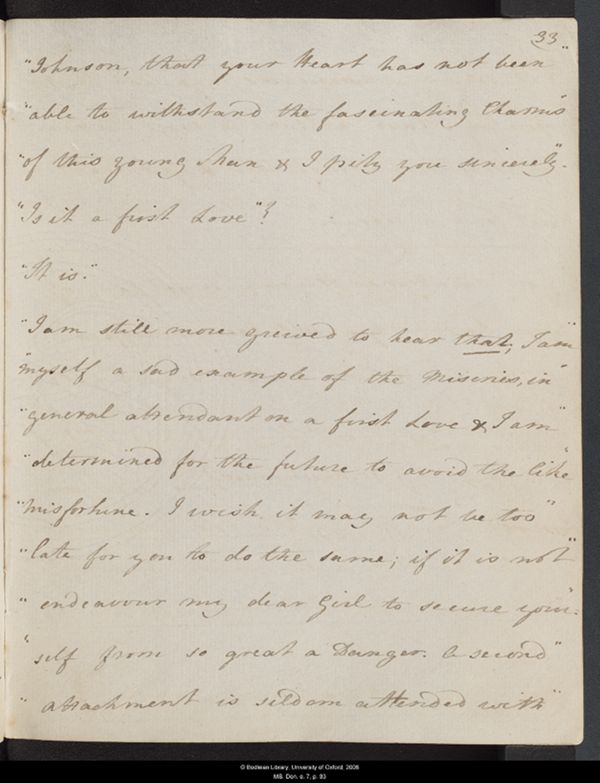 33
"Johnson, that your Heart has not been"
"able to withstand the fascinating Charms"
"of this young Man & I pity you sincerely".
"Is it a first Love"?
"It is."
"I am still more greived to hear that; I am"
"myself a sad example of the Miseries, in"
"general attendant on a first Love & I am"
"determined for the future to avoid the like"
"Misfortune. I wish it may not be too"
"late for you to do the same; if it is not"
"endeavour my dear Girl to secure your="
"self from so great a Danger. A second"
"attachment is seldom attended with"
© Bodleian Library, University of Oxford, 2006
MS. Don. e. 7, p. 33